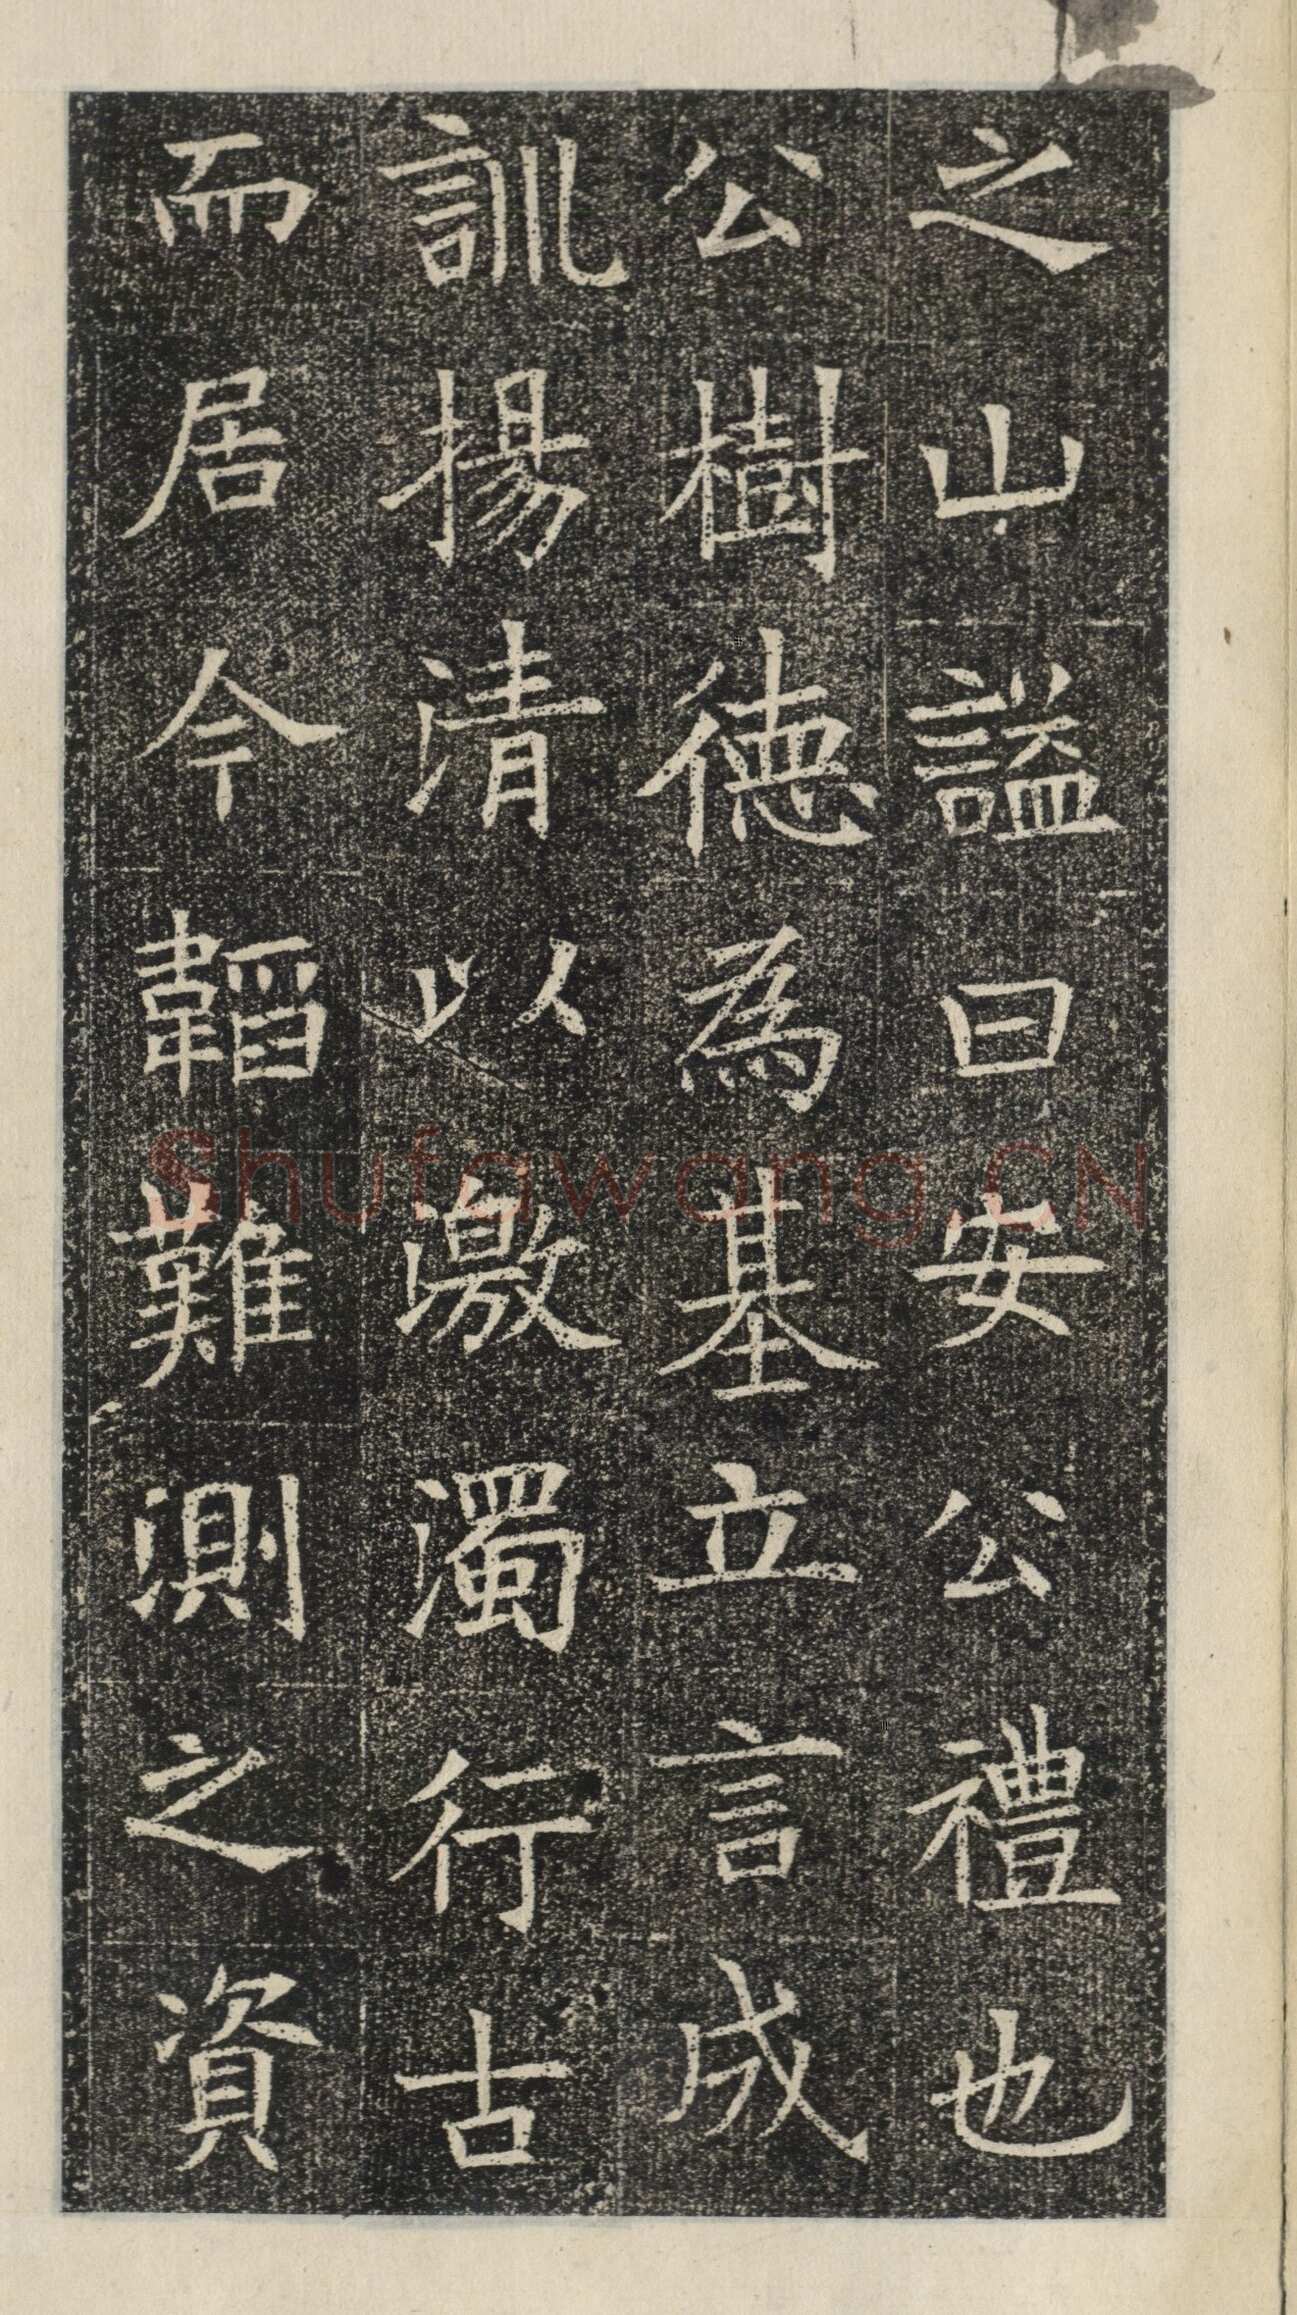 之山謚曰安公禮也
公樹德為基立言成
訓揚清以激濁行古
而居今韜難測之資
Shufawang.CN